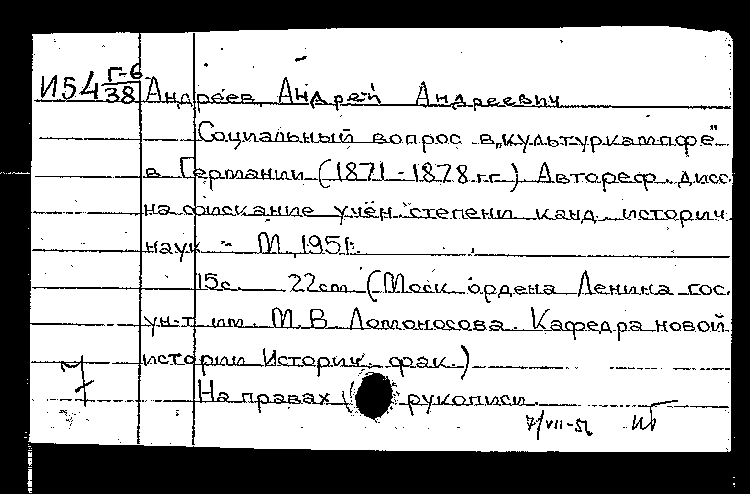 И54 Г-6/38 Андреев, Андрей Андреевич
Социальный вопрос в „культуркампфе"
в Германии (1871-1878 гг.) Автореф. дисс.
на соискание учён. степени канд. историч.
наук - М, 1951.
15с. 22cm (Моск. ордена Ленина гос.
ун-т им. М. В. Ломоносова. Кафедра новой
истории Историч. фак.)
На правах рукописи.
7/VII-52